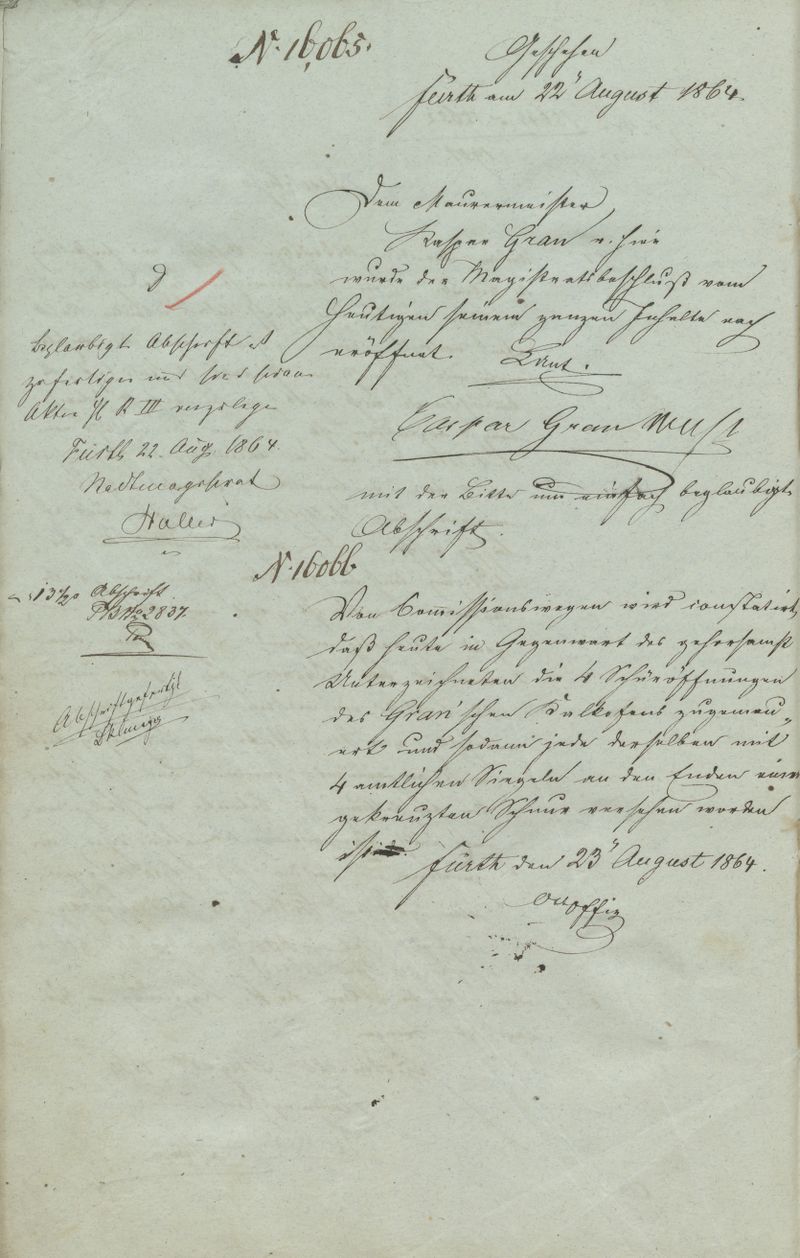 N. 16065.
Geschehen
Fürth am 22" August 1864.
Dem Maurermeister
Kaspar Gran v. hier
wurde der Magistratsbeschluß vom
Heutigen seinem ganzen Inhalte nach
eröffnet.
Caspar Gran
mit der Bitte um einfach beglaubigte
Abschrift.
beglaubigte Abschrift ist
zu fertigen und
Akten
Fürth 22. Aug. 1864.
Stadtmagistrat
Haller
N. 16066
Abschrift
2837.
Abschrift gefertigt
Von Commissionswegen wird constatirt,
daß heute in Gegenwart des gehorsamst
Unterzeichneten die 4 Schüröffnungen
des Gran'schen Kalkofens zugemau„
ert und sodann jede derselben mit
4 amtlichen Siegeln an den Enden einer
gekreuzten Schnur versehen worden
ist.
Fürth den 23" August 1864.